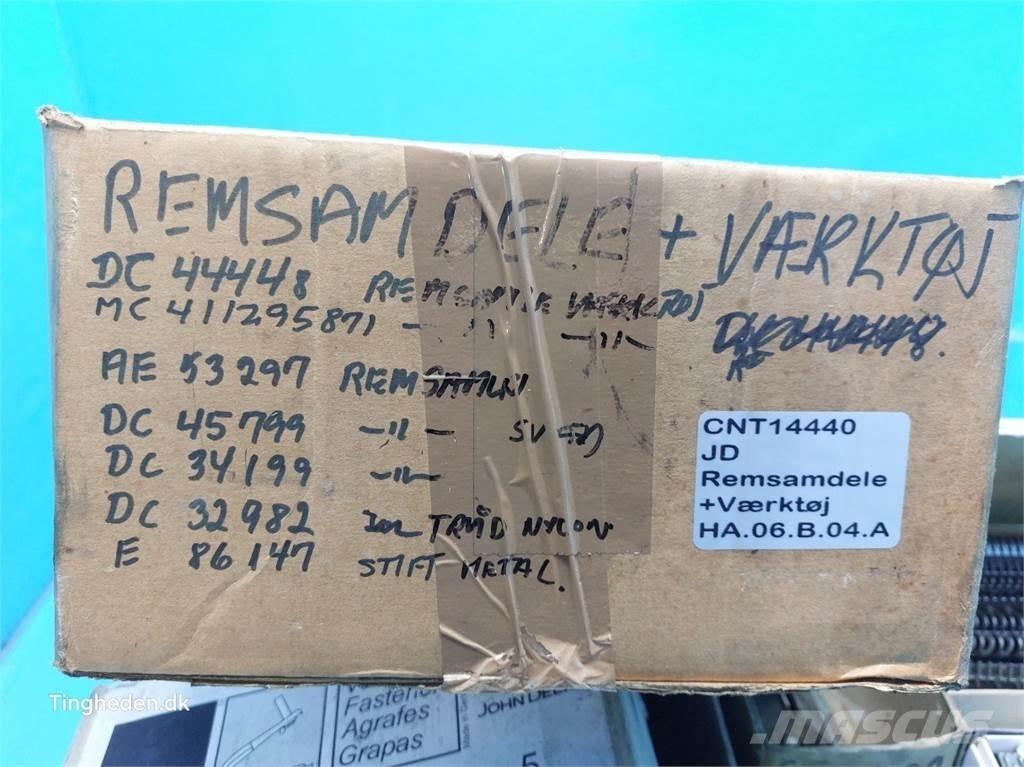 REMSAMDELE + VÆRKTØJ
DC 44448 REMSAMLE VÆRKTØJ
MC 411295871 —"— —"—
AE 53297 REMSAMLER
DC 45799 —"—
DC 34199 —"—
DC 32982 TRÅD NYLON
E 86147 STIFT METAL.
CNT14440
JD
Remsamdele
+Værktøj
HA.06.B.04.A
Fastener
Agrafes
Grapas
Made in
JOHN DEE
5
Tingheden.dk
MASCUS